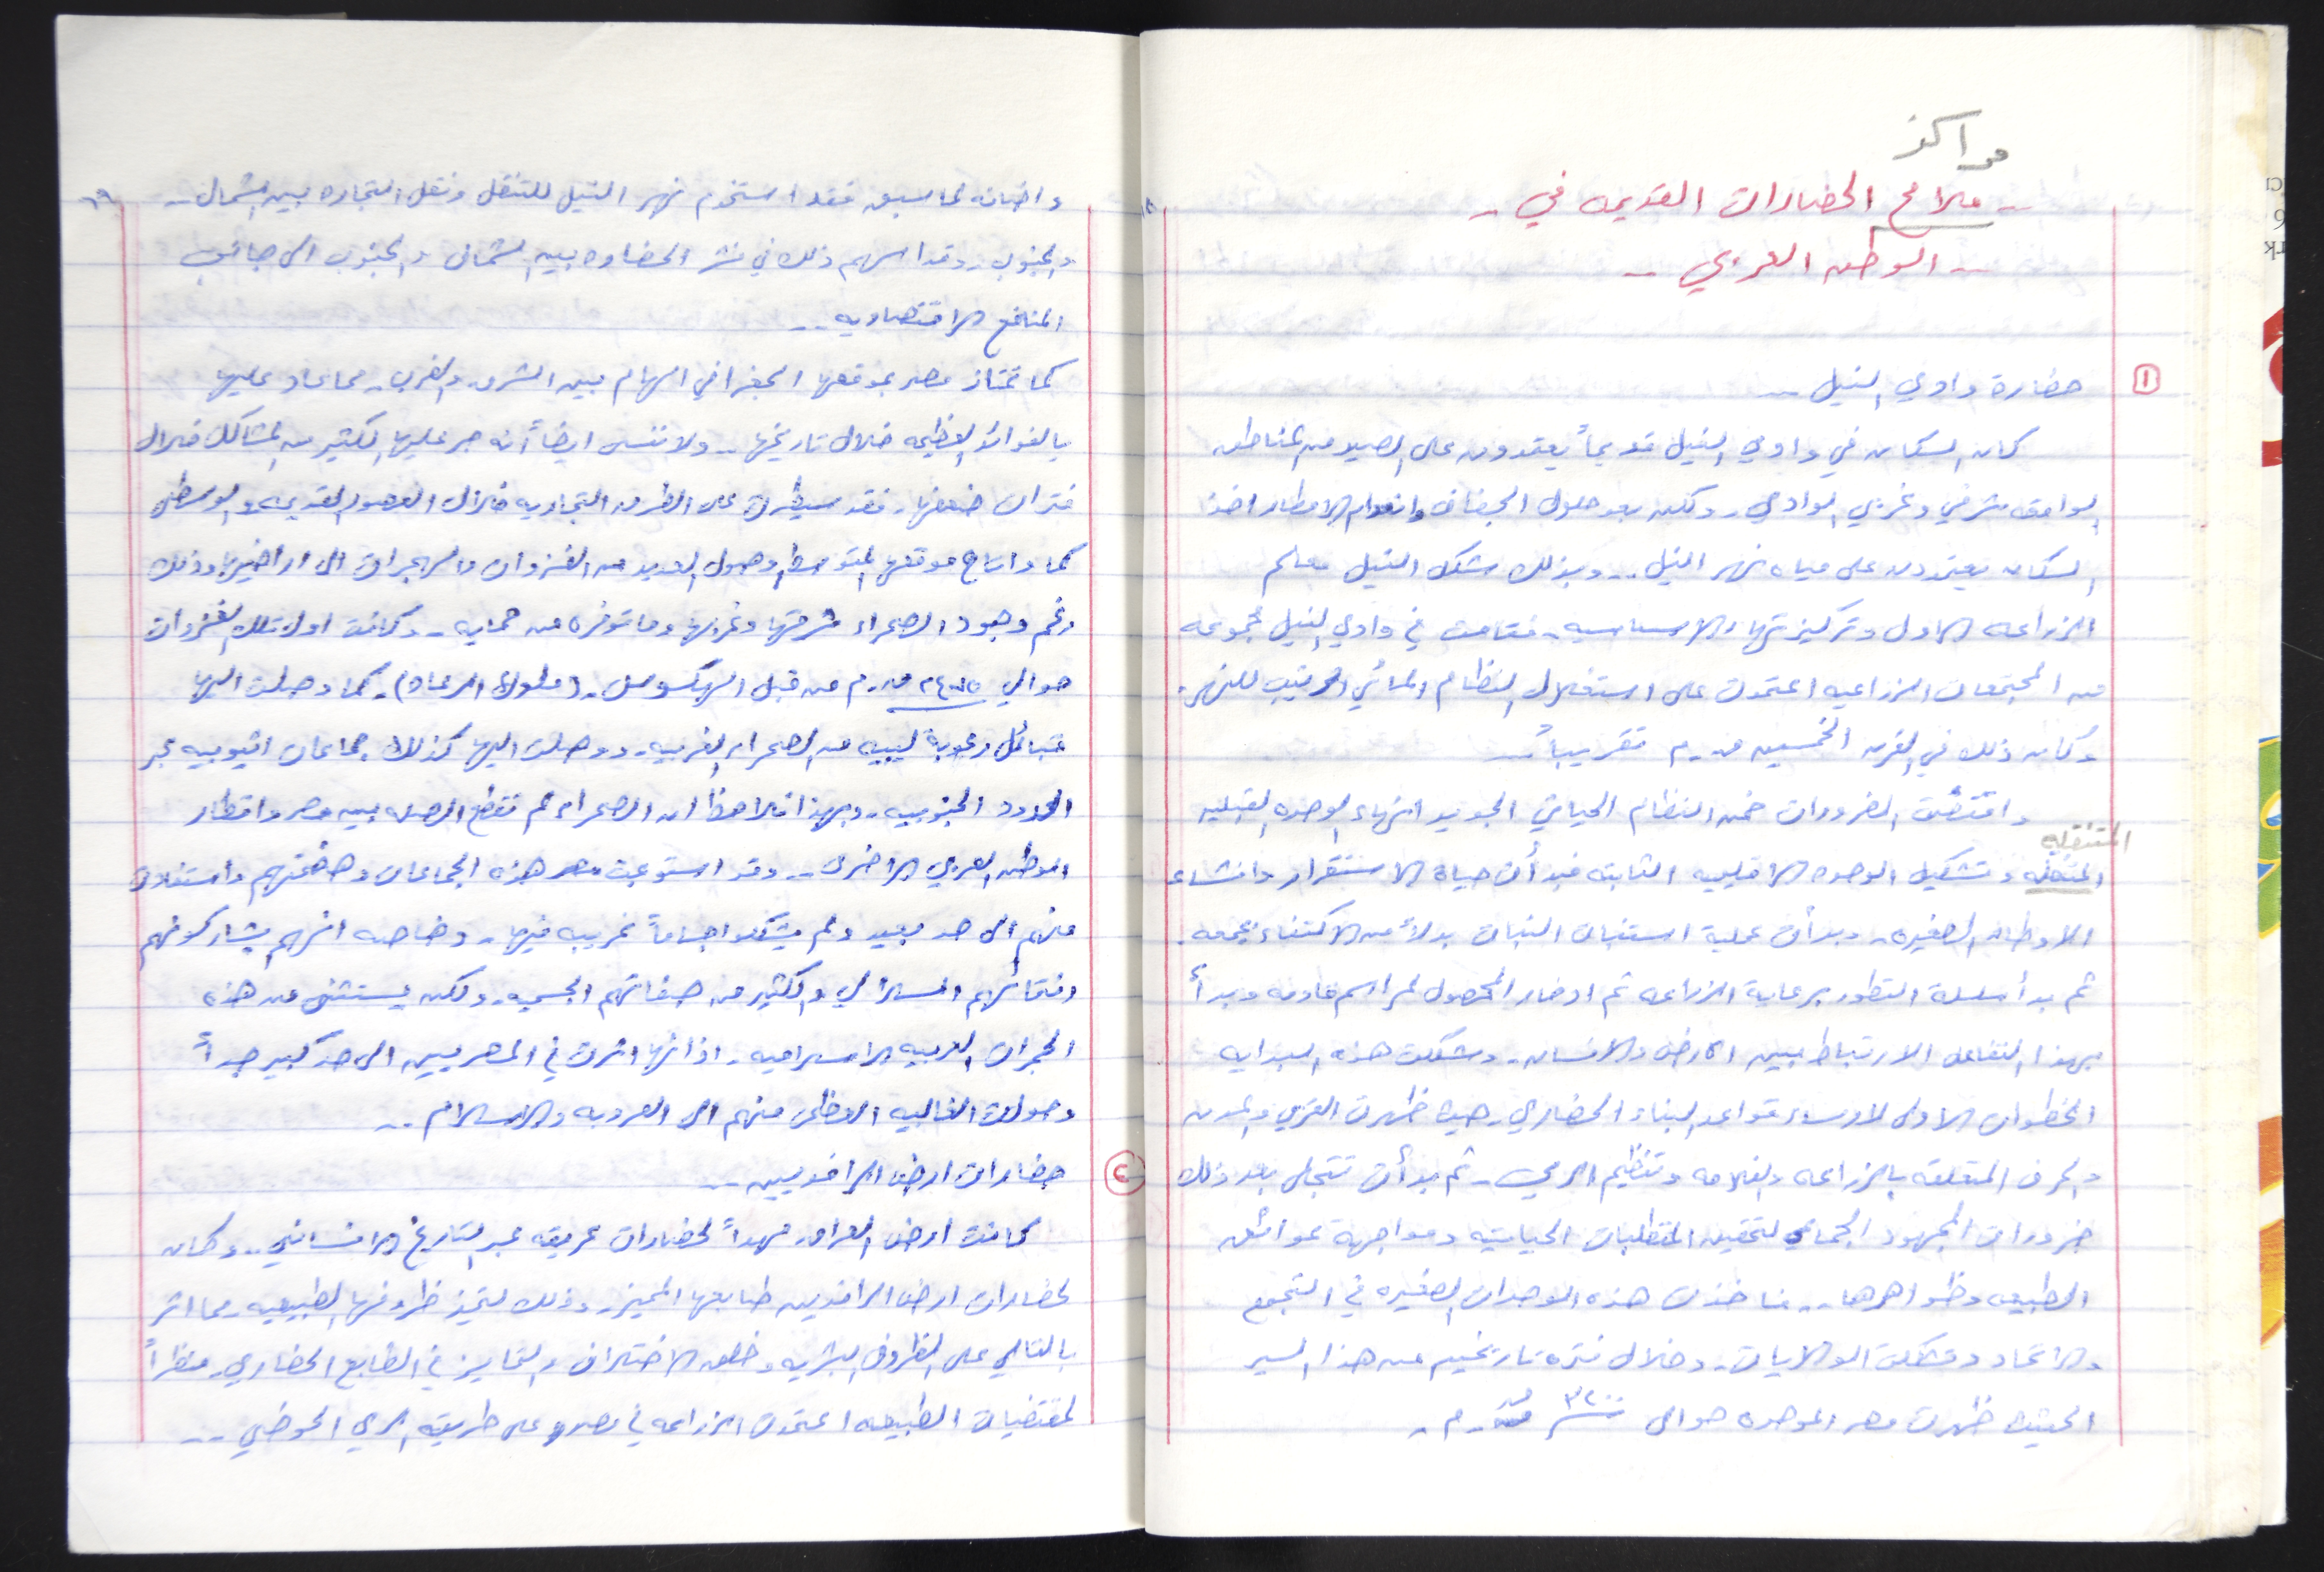 مراكز
-- ملامح الحضارات القديمه في --
-- الوطن العربي --
١
حضارة وادي النيل --
كان السكان في وادي النيل قديماً يعتمدون على الصيد من المناطق
الواقعه شرقي وغربي الوادي - ولكن بعد حلول الجفاف وانعدام الامطار اخذ
السكان يعتمدون على مياه نهر النيل -- وبذلك شكل النيل معلم
الزراعه الاول وتركيزتها الاساسيه - فقامت في وادي النيل مجموعه
من المجتمعات الزراعيه اعتمدت على استغلال النظام المائي الرتيب للنهر -
وكان ذلك في القرن الخمسين ق.م تقريباً --
واقتضت الضرورات ضمن النظام الحياتي الجديد انهاء الوحده القبليه
المتنقله
المتنقله وتشكيل الوحده الاقليميه الثابته فبدأت حياة الاستقرار وانشاء
الاوطان الصغيره - وبدأت عملية استنبات النبات بدلاً من الاكتفاء بجمعه -
ثم بدأ سلسلة التطور برعاية الزراعه ثم ادخار المحصول لمراسم قادمه وبدأ
بهذا التفاعل الارتباط بين الارض والانسان - وشكلت هذه البدايه
الخطوات الاولى لارساء قواعد البناء الحضاري - حيث ظهرت القرى والمدن
والحرف المتعلقه بالزراعه والفلاحه وتنظيم الري - ثم بدأت تتجلى بعد ذلك
ضرورات المجهود الجماعي لتحقيق المتطلبات الحياتيه ومواجهة عوائق
الطبيعه وظواهرها -- فاخذت هذه الوحدات الصغيره في التجمع
والاتحاد وتشكلت الولايات - وخلال فتره تاريخيه من هذا السير
الحثيث ظهرت مصر الموحده حوالى ٣٢٠٠ ق.م -
٦٩
واضافه لما سبق فقد استخدم نهر النيل للتنقل ونقل التجاره بين الشمال --
والجنوب - وقد اسهم ذلك في نشر الحضاره بين الشمال والجنوب الى جانب
المنافع الاقتصاديه --
كما تمتاز مصر بموقعها الجغرافي الهام بين الشرق والغرب - مما عاد عليها
بالفوائد العظيمه خلال تاريخها -- ولا ننسى ايضاً أنه جر عليها الكثير من المشاكل خلال
فترات ضعفها - فقد سيطرت على الطرق التجاريه خلال العصور القديمه والوسطى
كما واتاح موقعها المتوسط وصول العديد من الغزوات والهجرات الى اراضيها وذلك
رغم وجود الصحراء شرقها وغربها وما توفره من حمايه - وكانت اول تلك الغزوات
حوالي ق.م من قبل الهكسوس - (ملوك الرعاه) - كما وصلت اليها
قبائل رعوية ليبيه من الصحراء الغربيه - ووصلت اليها كذلك جماعات اثيوبيه عبر
الحدود الجنوبيه - وبهذا نلاحظ ان الصحراء لم تقطع الصله بين مصر واقطار
الوطن العربي الاخرى -- وقد استوعبت مصر هذه الجماعات وهضمتهم واستفادت
منهم الى حد بعيد ولم يشكلوا اجساماً غريبه فيها - وخاصه انهم يشاركونهم
انتمائهم السلالي والكثير من صفاتهم الجسميه - ولكن يستثنى من هذه
الهجرات العربيه الاسلاميه - اذ انها اثرت في المصريين الى حد كبير جداً
وحولت الغالبيه العظمى منهم الى العروبه والاسلام --
٢
حضارات ارض الرافديين --
كانت ارض العراق مهداً لحضارات عريقه عبر التاريخ الانساني -- وكان
لحضارات ارض الرافدين طابعها المميز - وذلك لتميز ظروفها الطبيعيه - مما اثر
بالتالي على الظروف البشريه وخلق الاختلاف والتمايز في الطابع الحضاري - فنظراً
لمقتضيات الطبيعه اعتمدت الزراعه في مصر على طريقه الري الحوضي --